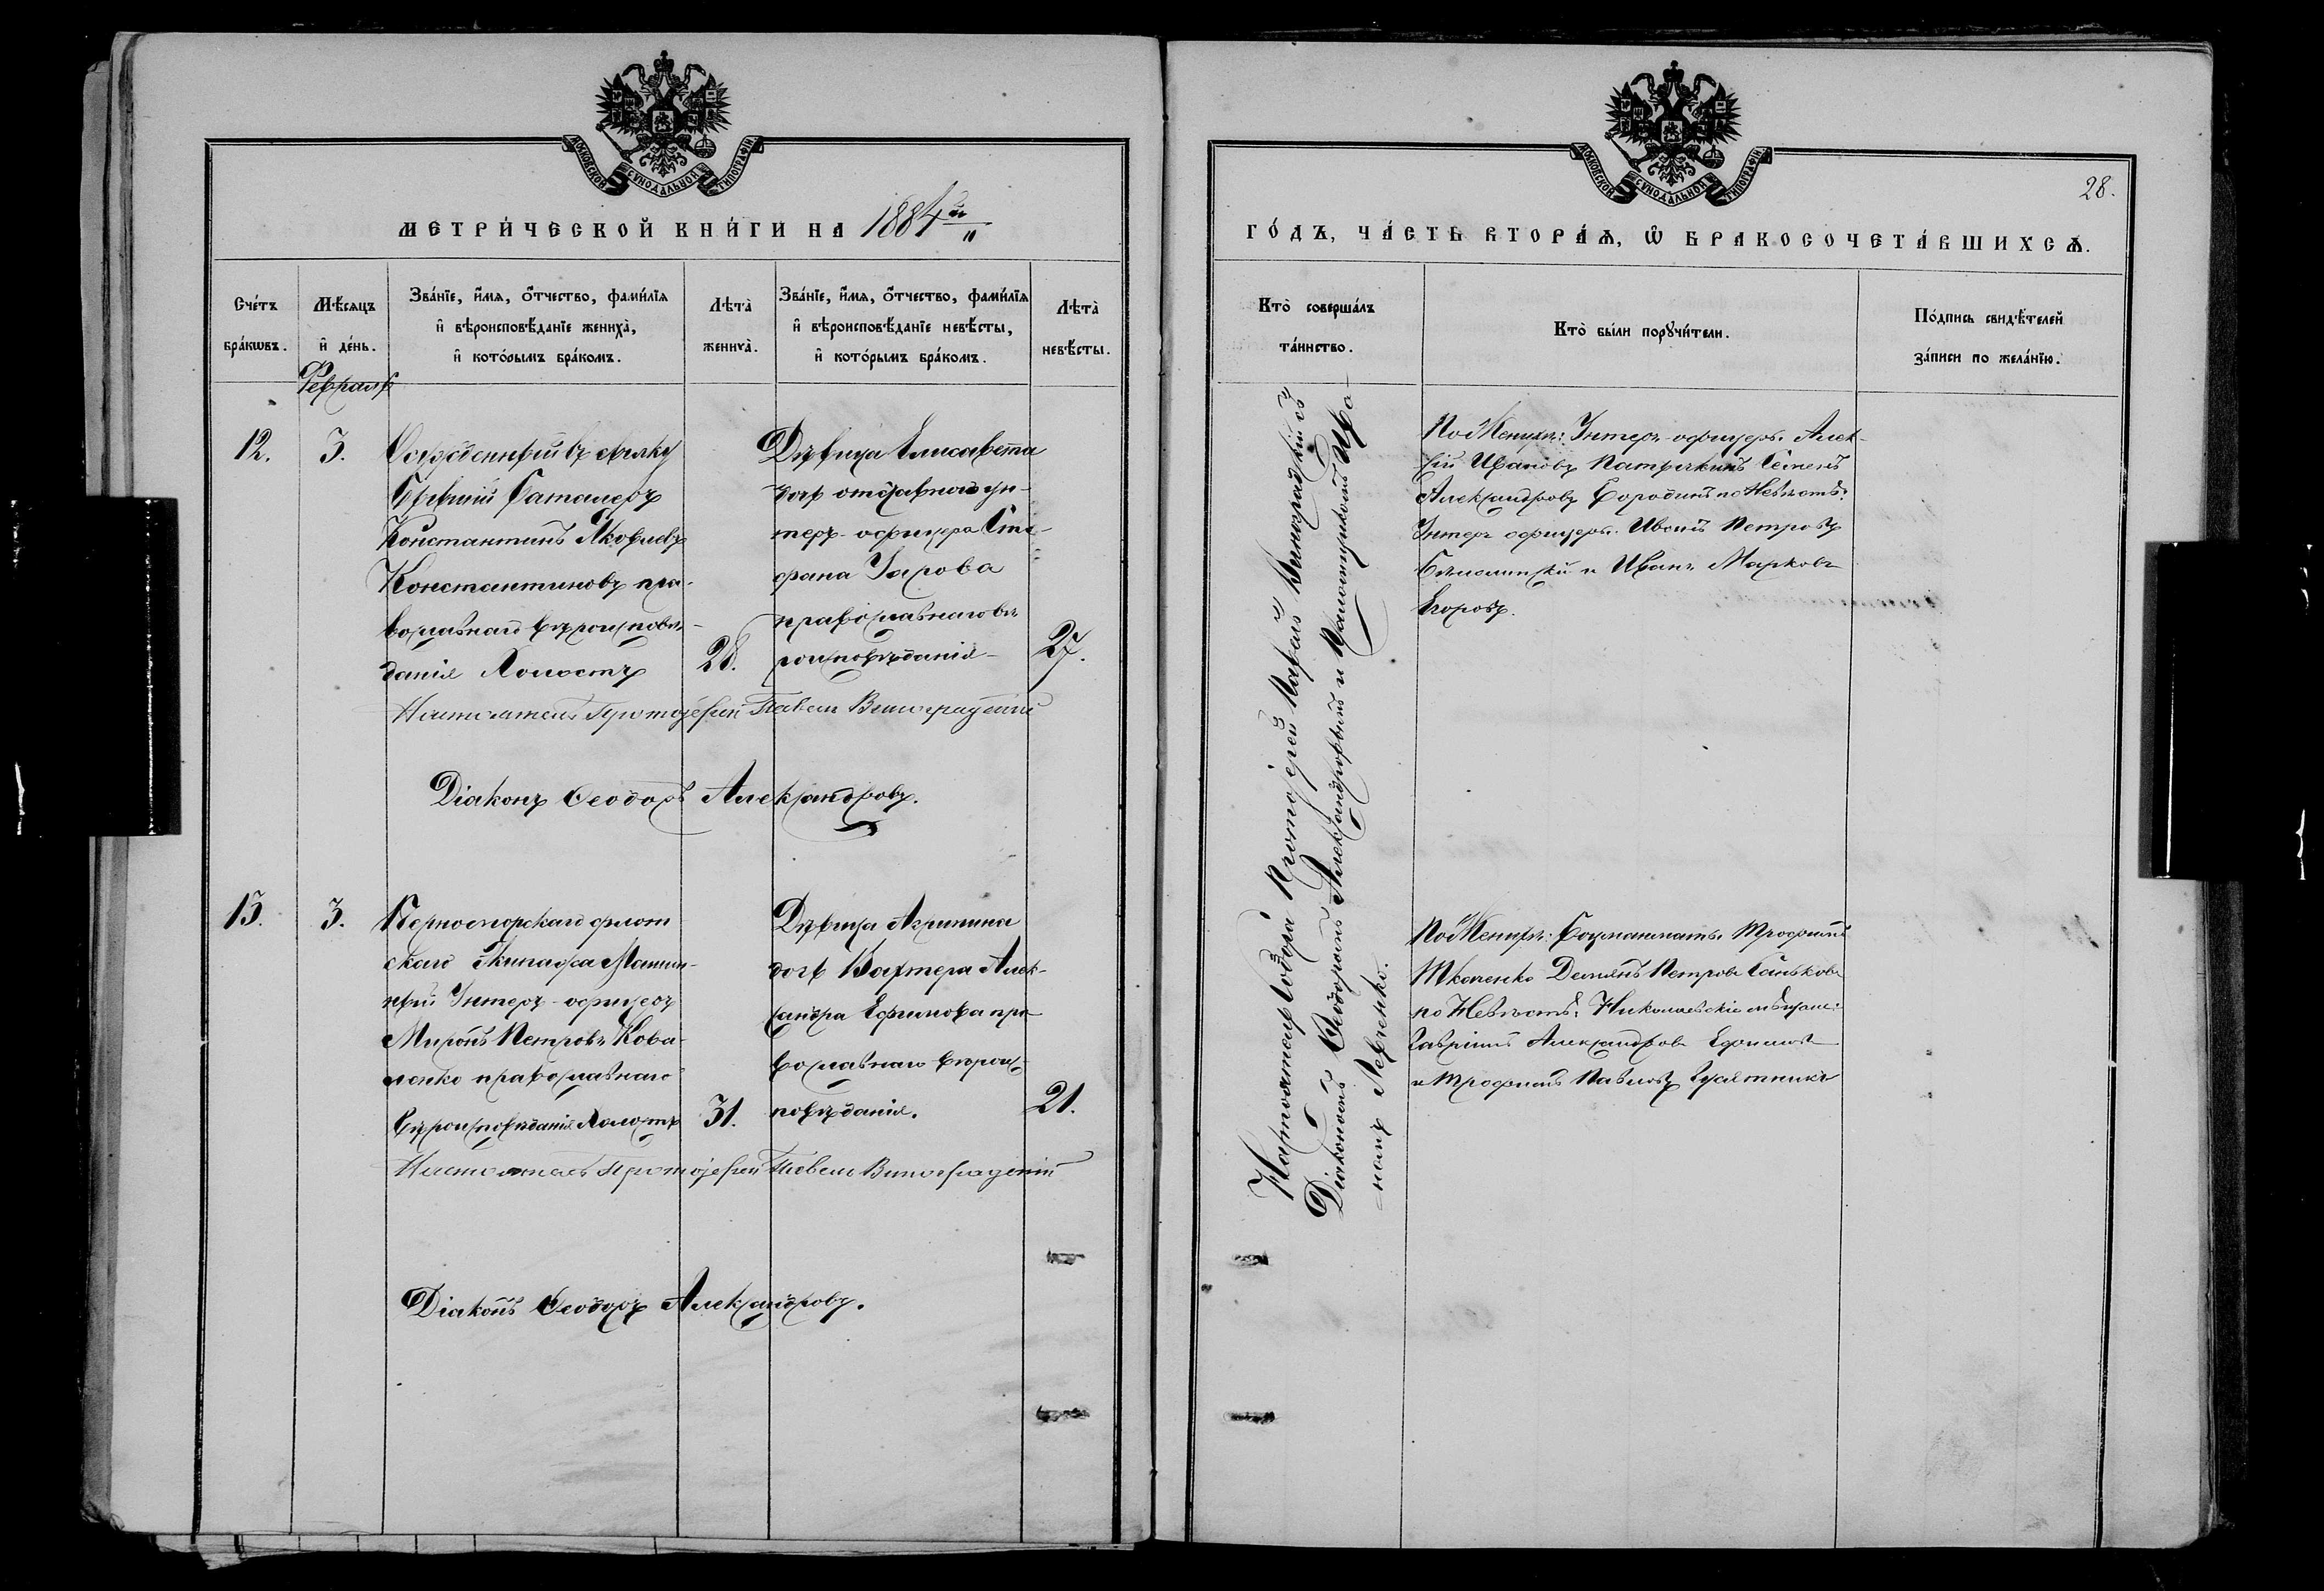 МОСКОВСКОЙ СУНОДАЛЬНОЙ ТИПОГРАФІИ
МЕТРИ́ЧЕСКОЙ КНИ́ГИ НА 1884й
Сче́тъ бра́кѡвъ.
Мѣ́сяцъ и де́нь.
Зва́нїе, и́мя, ѻ́тчество, фами́лїя
и вѣроисповѣ́данїе жениха̀,
и кото́рымъ бра́комъ.
Лѣта̀ жениха̀.
Зва́нїе, и́мя, ѻ́тчество, фами́лїя
и вѣроисповѣ́данїе невѣ́сты,
и кото́рымъ бра́комъ.
Лѣта̀ невѣ́сты.
Февраль
12.
3.
Бывшій Баталеръ
Константинъ Яковлевъ
Константиновъ пра-
вославнаго вѣроисповѣ-
данія Холостъ
28.
Дѣвица Елисавета
дочь отставнаго ун-
теръ-офицера Сте-
фана
православнаго вѣ-
роисповѣданія
27.
Настоятель Протоіерей Павелъ Виноградскій
Діаконъ Ѳеодоръ Александровъ.
13.
3.
Черноморскаго флот
скаго Экипажа Машин-
ный Унтеръ-офицеръ
Миронъ Петровъ Кова-
ленко православнаго
вѣроисповѣданія Холостъ
31.
Дѣвица Агрипина
дочь Вахтера Алек-
сандра Ефимова пра-
вославнаго вѣроис-
повѣданія.
21.
Настоятель Протоіерей Павелъ Виноградскій
Діаконъ Ѳеодоръ Александровъ.
МОСКОВСКОЙ СУНОДАЛЬНОЙ ТИПОГРАФІИ
28.
ГО́ДЪ, ЧА́СТЬ ВТОРА́Ѧ, Ѡ БРАКОСОЧЕТА́ВШИХСѦ.
Кто̀ соверша́лъ
та́инство.
Кто̀ бы́ли порꙋчи́тели.
По́дпись свидѣ́телей
за́писи по жела́нїю.
Протоіерей Павелъ Виноградскій съ
Діакономъ Ѳеодоромъ Александровымъ и Псаломщикомъ Ива-
номъ Левченко.
По Женихѣ: Унтеръ-офицеры. Алек-
сій Ивановъ Семенъ
Александровъ Бородинъ по Невѣстѣ:
Унтеръ офицеры. Иванъ Петровъ
и Иванъ Марковъ
Егоровъ.
По Женихѣ: Боцманматъ Трофимъ
Ткаченко Демьянъ Петровъ Саньковъ
по Невѣстѣ: Николаевскіе мѣщане:
Гавріилъ Александровъ Ефимовъ
и Трофимъ Павловъ Гусятникъ